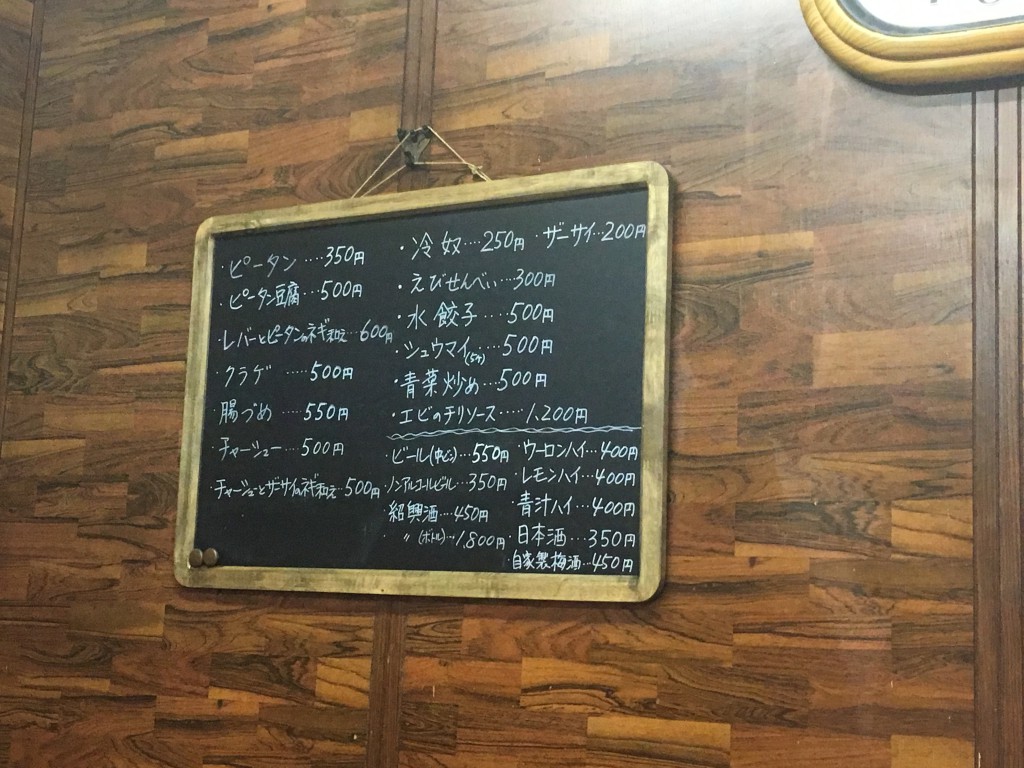 ・ピータン‥‥350円
・ピータン豆腐…500円
・レバーとピータンのネギ和え…600円
・クラゲ ‥‥500円
・腸づめ ‥‥550円
・チャーシュー…500円
・チャーシューとザーサイのネギ和え…500円
・冷奴…250円 ・ザーサイ…200円
・えびせんべい…300円
・水餃子…500円
・シュウマイ(5ヶ)…500円
・青菜炒め…500円
・エビのチリソース‥‥1,200円
・ビール(中ビン)…550円
・ノンアルコールビール…350円
紹興酒…450円
・ 〃 (ボトル)…1,800円
・ウーロンハイ…400円
・レモンハイ…400円
青汁ハイ…400円
・日本酒…350円
自家製梅酒…450円